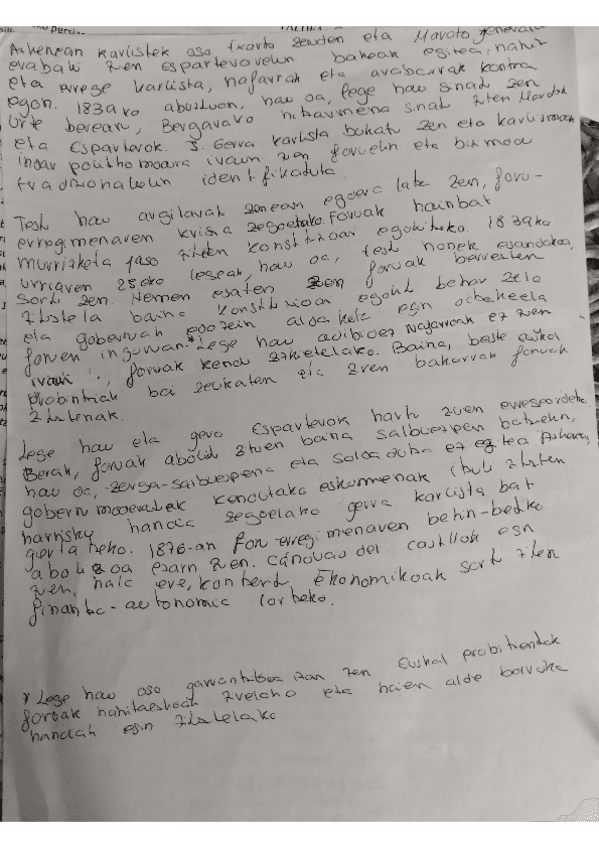 Azkenean karlistek oso txarto zeuden eta Maroto jenerala
erabaki zuen Esparterorekin bakeak egitea, nahiz
eta errege karlista, nafarrak eta arabarrak kontra
egon. 1839ko abuztuan, hau da, lege hau sinatu zen
urte berean, Bergarako hitzarmena sinatu zuten Marotok
eta Esparterok. I. Gerra karlista bukatu zen eta karlismoak
indar politikoa izan zen foruekin eta
tradizionalekin identifikatuta.
Testu hau argitaratu zenean egoera latz zen, foru-
erregimenaren krisia zegoelako. Foruak hainbat
murrizketa jaso zituen konstituzioari egokitzeko. 1839ko
urriaren 25eko legeak, hau da, testu honek esandakoa,
sortu zen. Hemen esaten zen foruak berresten
zirela baina konstituzioari egokitu behar zela
eta gobernuak edozein aldaketa egin dezakeela
foruen inguruan.* Lege hau Nafarroak ez zuen
foruak kendu zizkietelako. Baina, beste euskal
probintziak bai zeukaten eta ziren bakarrak foruak
zituztenak.
Lege hau eta gero Esparterok hartu zuen erregeordetza.
Berak, foruak abolitu zituen baina salbuespen batzuekin,
hau da, zerga-salbuespena eta soldadutza ez egitea. Azkenean,
gobernu moderatuek kendutako eskumenak itzuli zituzten
arrisku handia zegoelako gerra karlista bat
gertatzeko. 1876-an foru-erregimenaren behin-betiko
abolizioa ezarri zen. Cánovas del Castillok egin
zuen, hala ere, kontzertu ekonomikoak sortu ziren
finantza-autonomia lortzeko.
* Lege hau oso garrantzitsua izan zen Euskal probintziak
foruak mantentzeko eta haien alde borroka
handiak egin zituztelako